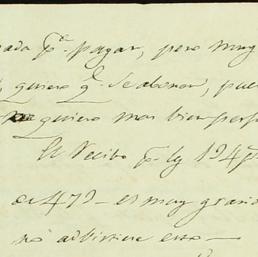 nada pᵃ. pagar, pero muy
quiero qᵉ. se abonen, pues
quiero mas bien per
El Recibo pʳ. lg 194 pˢ
de 479 – es muy grand
no advirtiese esto —